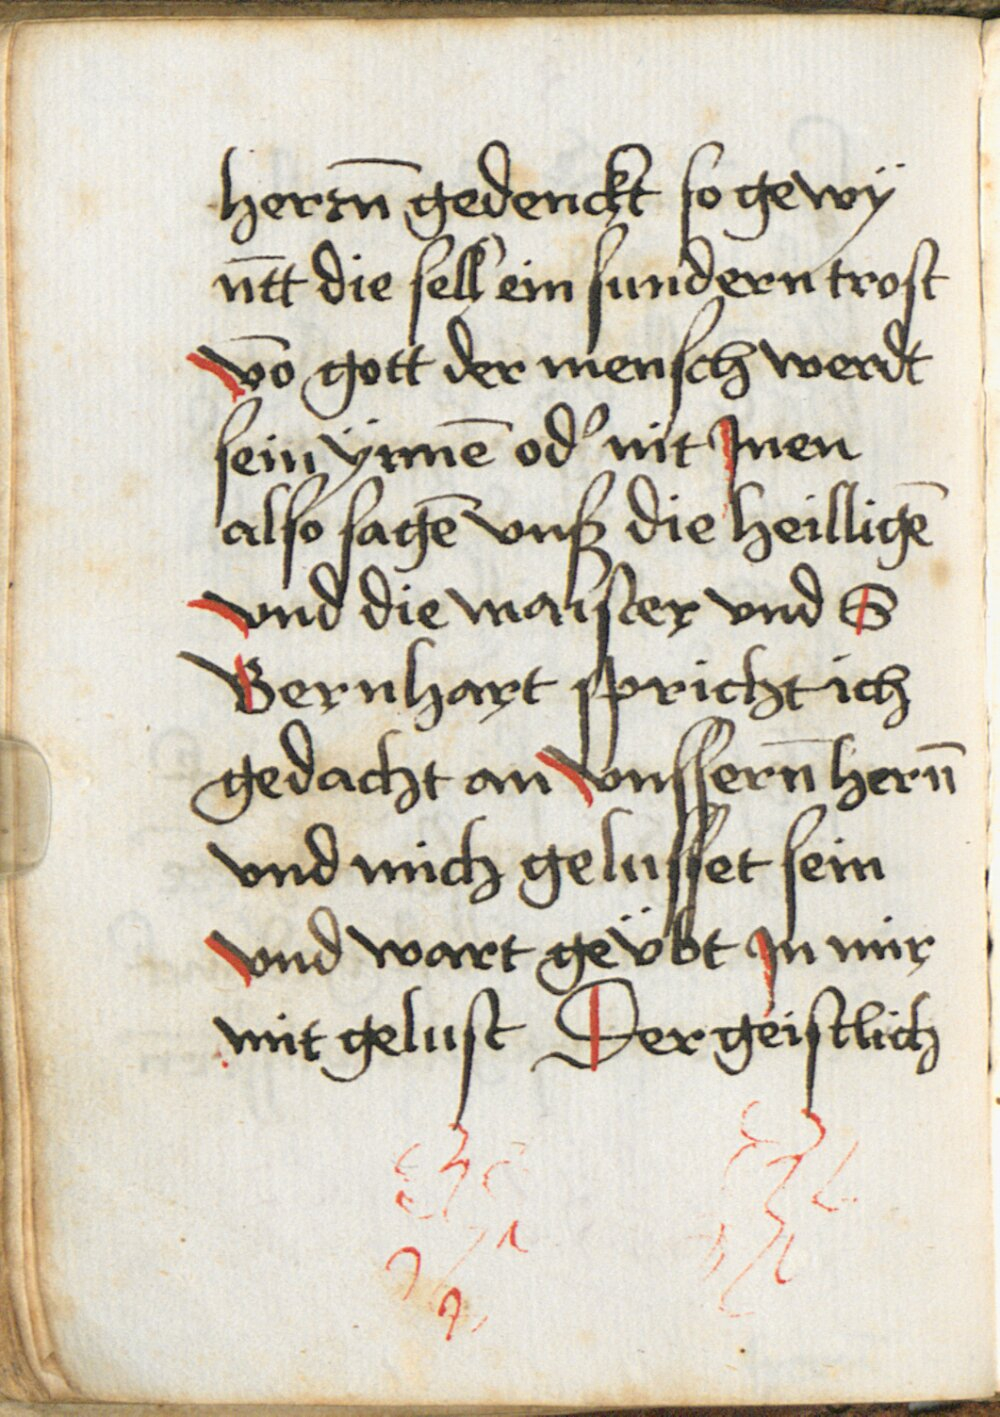 herzn̄ gedenckt so gewÿ
n̄tt die sell ein sundern trost
vō gott der mensch werdt
sein ÿnnē od' nit Jnen
also sagē vnß die heilligē
vnd die maister vnd S
Bernhart spricht ich
gedacht an vnssern̄ hern̄
vnd mich gelusset sein
vnd wart gev̈bt Jn mir
mit gelust Der geistlich